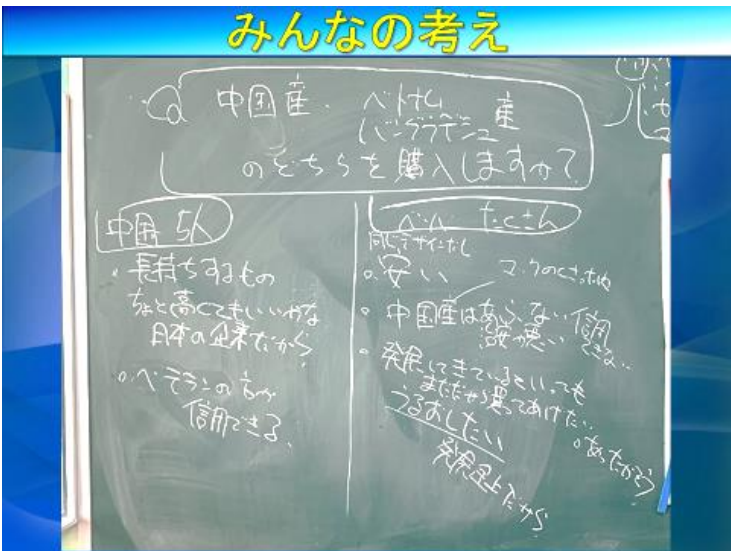 みんなの考え
Q 中国産、ベトナム
バングラデシュ 産
のどちらを購入しますか?
中国 5人
・長持ちするもの
ちょと高くてもいいかな
日本の企業だから
・ベテランの方が
信用できる、
ベ、バ、たくさん
同じデザインだし
・安い
・中国産はあぶない 信用
できない
・発展してきているといっても
まだだから買ってあげたい、
うるおしたい
発展途上だから
・あったかそう